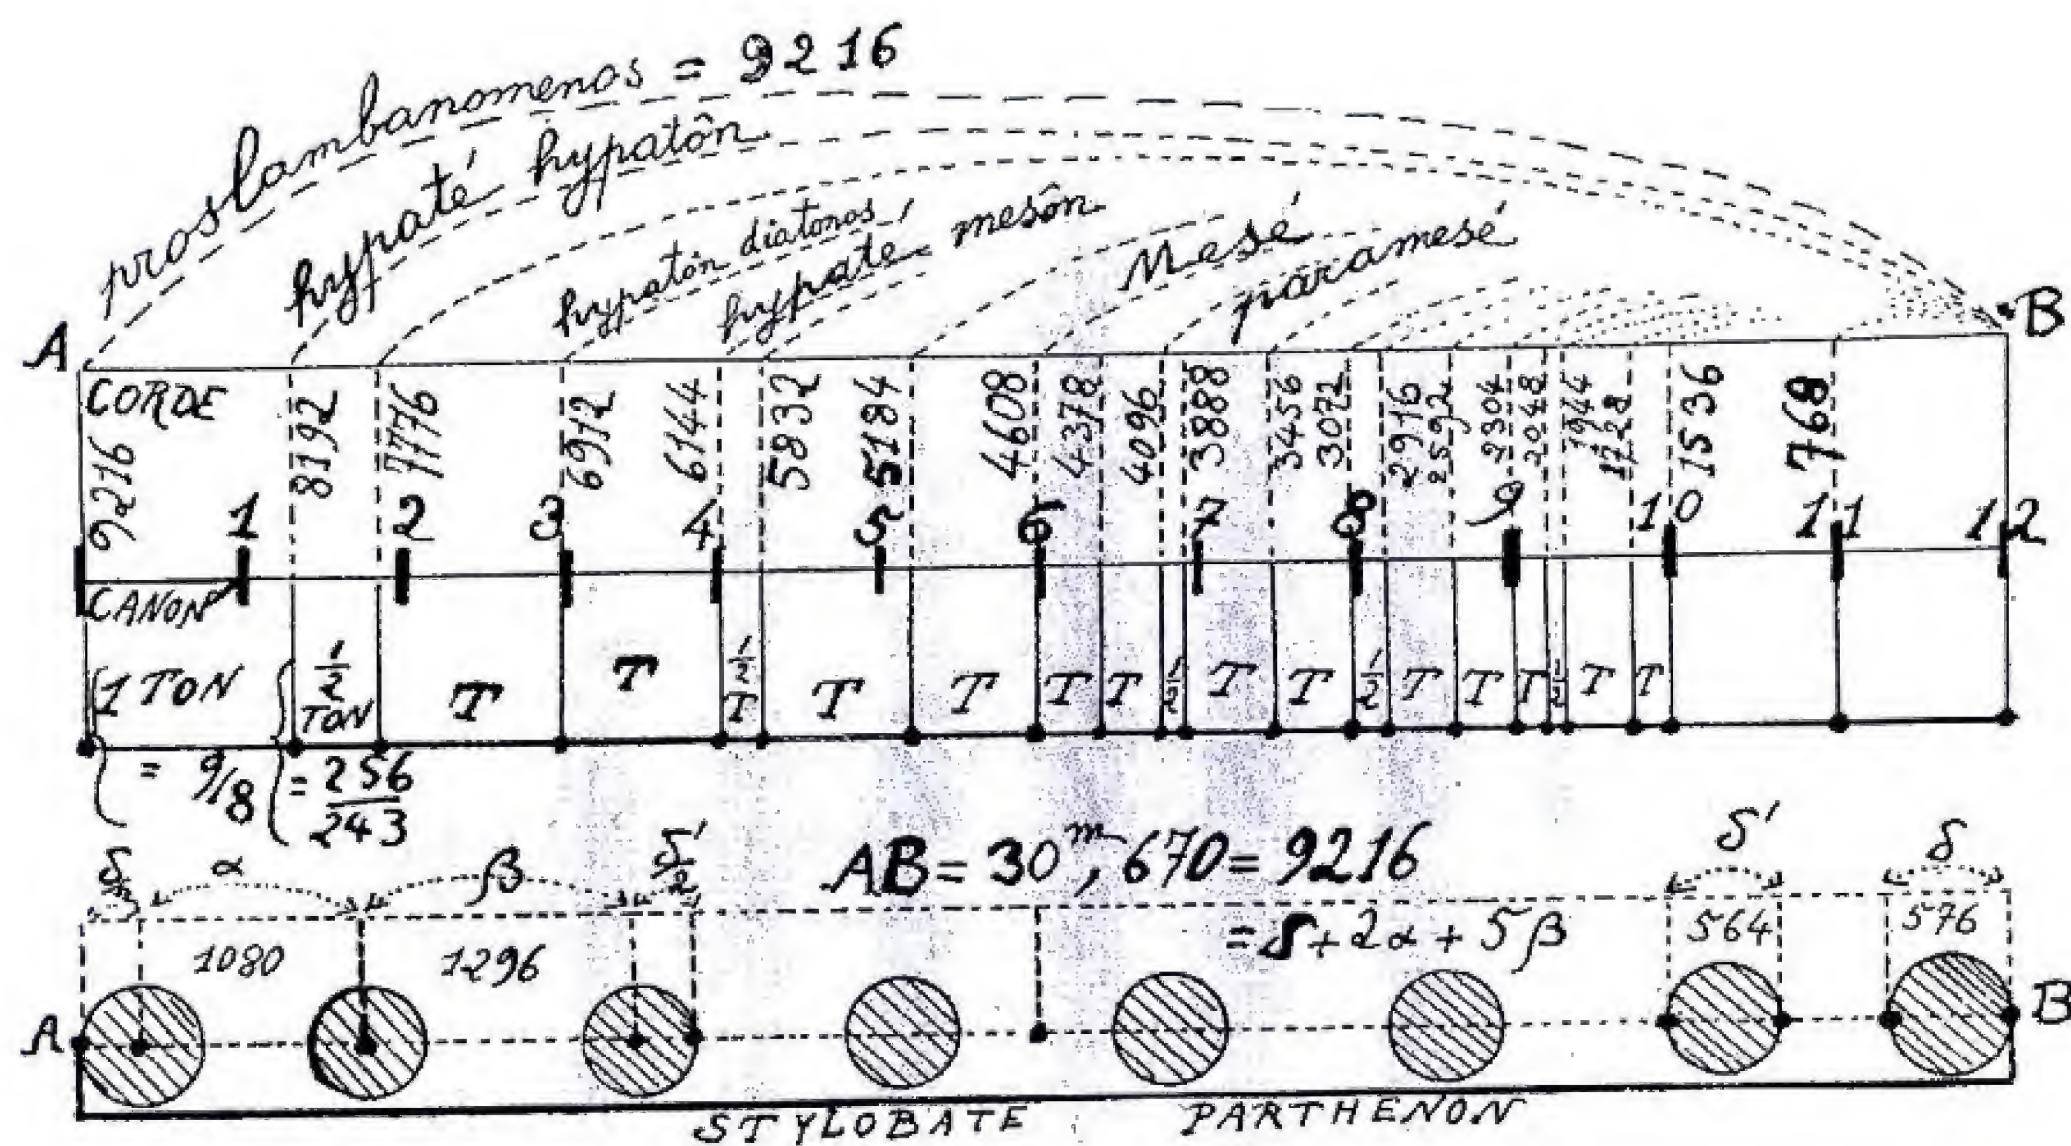 proslambanomenos = 9216
hypaté hypatôn
hypatôn diatonos
hypaté mesôn
Mesé
paramesé
A B
CORDE
9216 8192 7776 6912 6144 5832 5184 4608 4378 4096 3888 3456 3072 2916 2592 2304 2048 1944 1728 1536 768
1 2 3 4 5 6 7 8 9 10 11 12
CANON
1 TON 1/2 TON T T 1/2 T T T T T 1/2 T T 1/2 T T T 1/2 T T
= 9/8 = 256/243
δ/2 α β δ'/2 AB = 30m,670 = 9216 δ' δ
1080 1296 = δ + 2α + 5β 564 576
A B
STYLOBATE PARTHENON